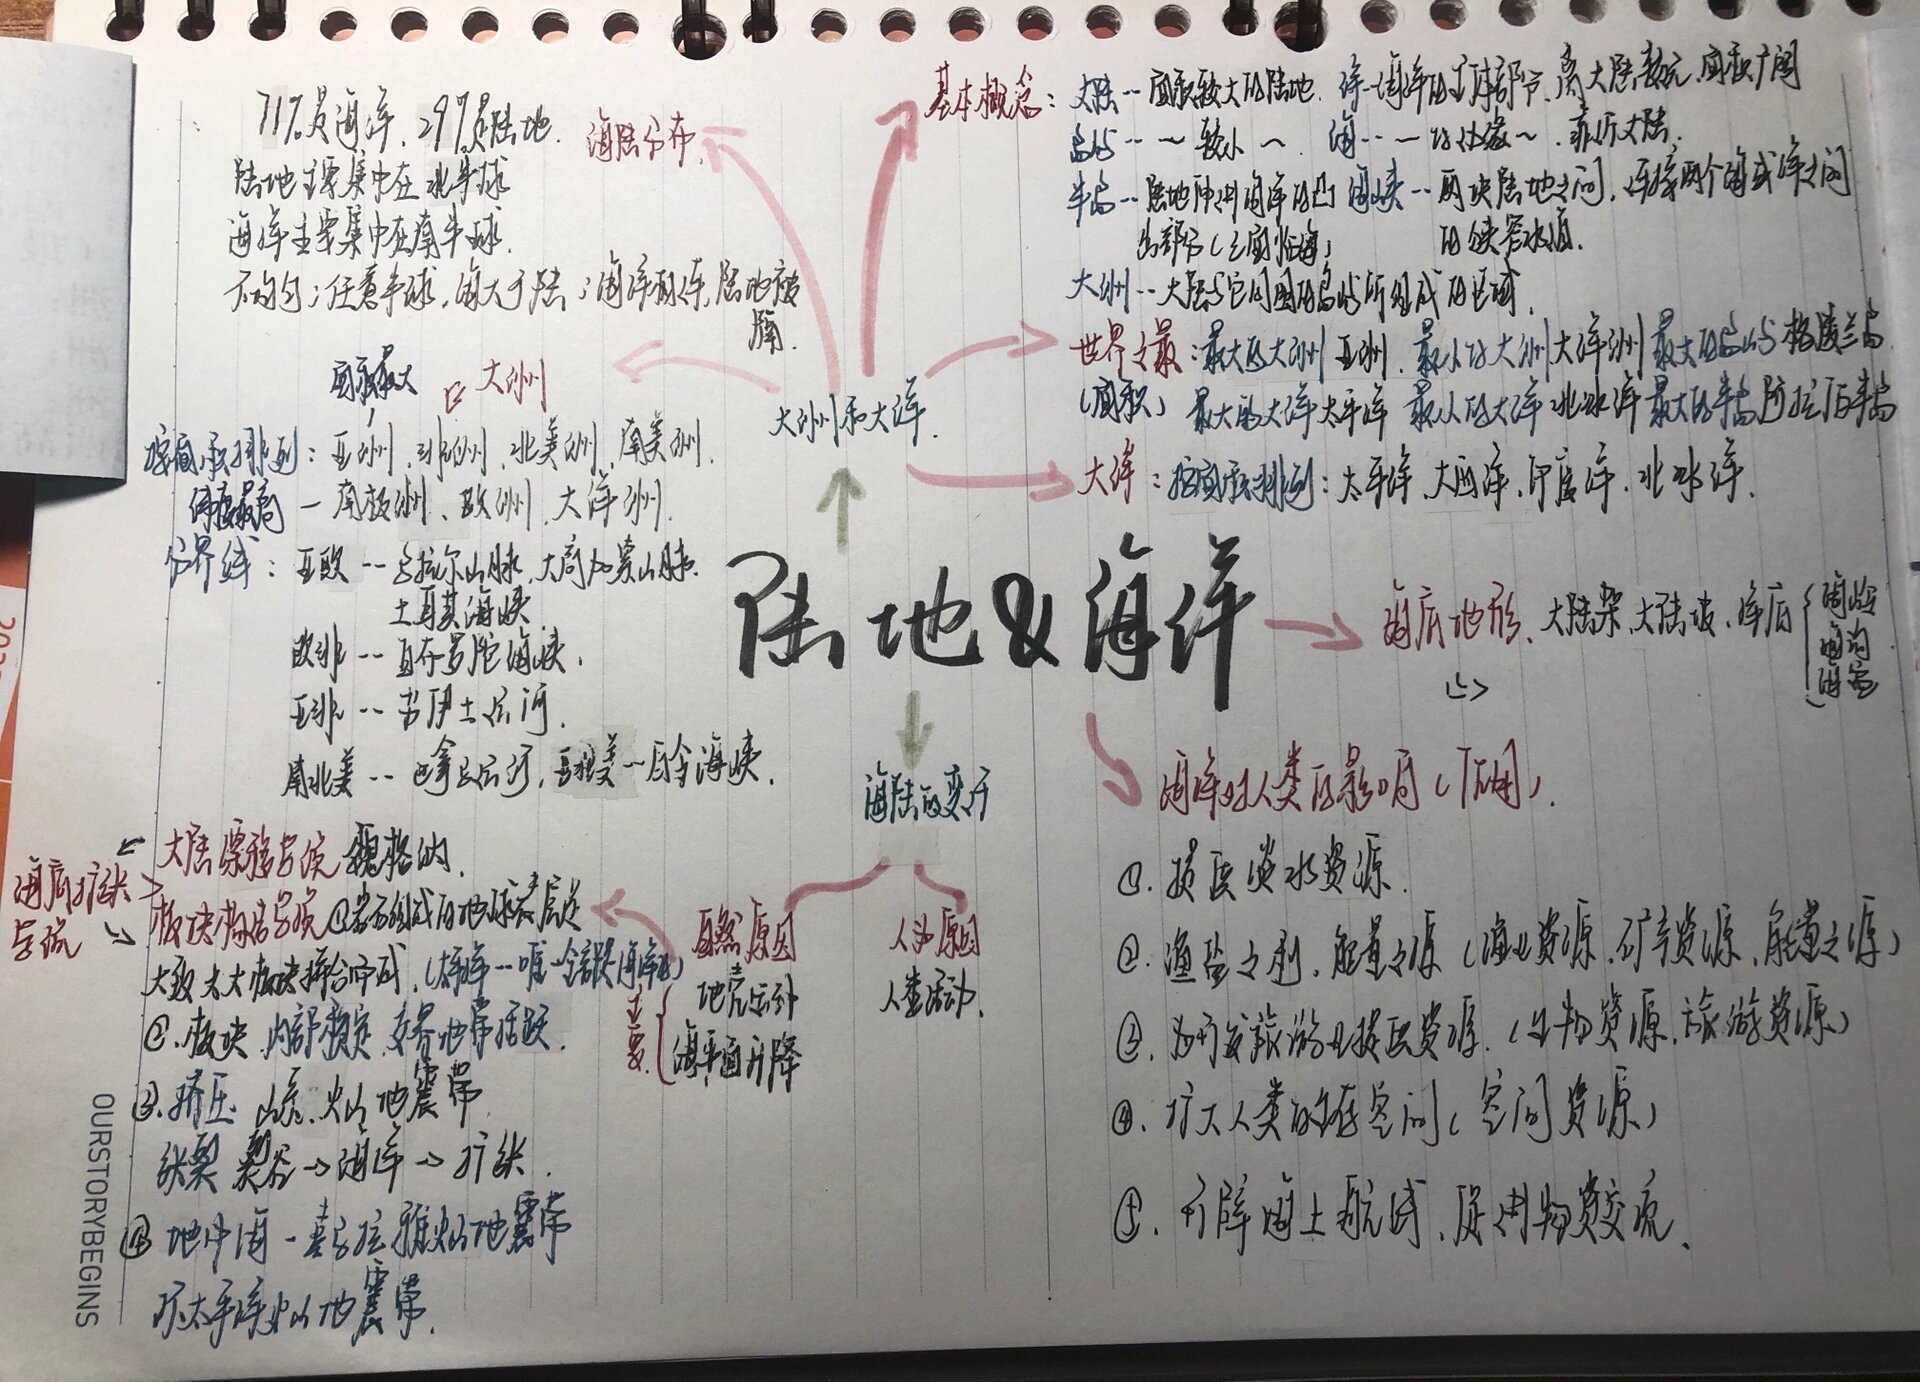 71%是海洋、29%是陆地.
陆地主要集中在北半球
海洋主要集中在南半球.
不均匀：任意半球，海大于陆；海洋相连，陆地被
隔.
海陆分布
基本概念：大陆--面积较大的陆地. 洋--海洋的主体部分、离大陆较远、面积广阔
岛屿--~较小~. 海--~的边缘~、靠近大陆.
半岛--陆地伸进海洋的凸
出部分（三面临海）
海峡--两块陆地之间，连接两个海或洋之间
的狭窄水道.
大洲--大陆与它周围的岛屿所组成的区域.
世界之最：最大的大洲 亚洲. 最小的大洲 大洋洲 最大的岛屿 格陵兰岛
（面积） 最大的大洋 太平洋 最小的大洋 北冰洋 最大的半岛 阿拉伯半岛
大洋：按面积排列：太平洋、大西洋、印度洋、北冰洋.
大洲和大洋.
大洲
面积最大
按面积排列：亚洲、非洲、北美洲、南美洲、
纬度最高 — 南极洲、欧洲、大洋洲.
分界线：亚欧 -- 乌拉尔山脉、大高加索山脉、
土耳其海峡.
欧非 -- 直布罗陀海峡.
亚非 -- 苏伊士运河.
南北美 -- 巴拿马运河，亚北美 -- 白令海峡.
陆地&海洋
海底地形、大陆架、大陆坡、洋底
海岭
海沟
海盆
海洋对人类的影响（作用）.
①. 提供淡水资源.
②. 渔盐之利、能量之源（渔业资源、矿产资源、能量之源）
③. 为开发旅游业提供资源.（生物资源、旅游资源）
④. 扩大人类的生存空间（空间资源）
⑤. 开辟海上航线、促进物资交流.
海陆的变迁
自然原因
主要
地壳运动
海平面升降
人为原因
人类活动.
大陆漂移学说 魏格纳.
海底扩张
学说
板块构造学说 ①岩石组成的地球表层是
大致六大板块拼合而成.（太平洋--唯一全部是海洋的）
②. 板块 内部稳定、交界地带活跃.
③. 挤压 山系、火山地震带
张裂 裂谷→海洋→扩张.
④ 地中海-喜马拉雅火山地震带
环太平洋火山地震带.
OURSTORYBEGINS